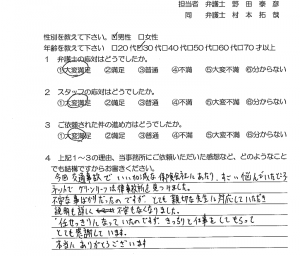 担当者 弁護士 野田泰彦
同 弁護士 村本拓哉
性別を教えて下さい。 ☑男性 □女性
年齢を教えて下さい □20代☑30代□40代□50代□60代□70才以上
1 弁護士の応対はどうでしたか。
①大変満足 ②満足 ③普通 ④不満 ⑤大変不満 ⑥分からない
2 スタッフの応対はどうでしたか。
①大変満足 ②満足 ③普通 ④不満 ⑤大変不満 ⑥分からない
3 ご依頼された件の進め方はどうでしたか。
①大変満足 ②満足 ③普通 ④不満 ⑤大変不満 ⑥分からない
4 上記1~3の理由、当事務所にご依頼いただいた感想など、どのようなこと
でも結構ですからお書きください。
今回 交通事故で いい加減な 保険会社にあたり、すごい悩んでいた
ネットで グリーンリーフ法律事務所を見つけました。
不安な事ばかりだったのですが、とても親切な先生に対応していただき
説明も詳しく 不安もなくなりました。
任せっきりになっていたのですが、きっちりと仕事をしてもらって
とても感謝しています。
本当に ありがとうございます